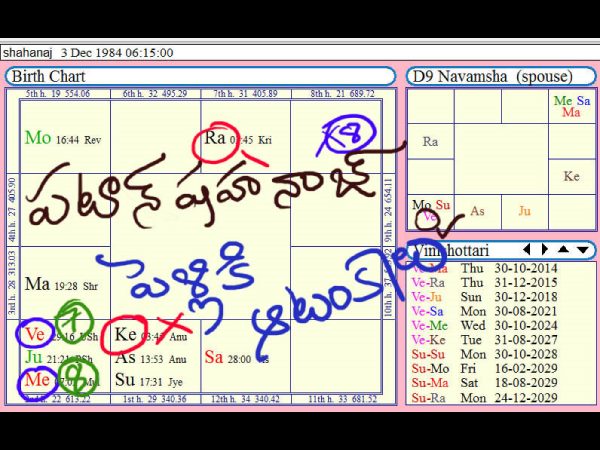 shahanaj 3 Dec 1984 06:15:00
Birth Chart
D9 Navamsha (spouse)
5th h. 19 554.06
6th h. 32 495.29
7th h. 31 405.89
8th h. 21 689.72
Mo 16:44 Rev
Ra 03:45 Kri
8
Me Sa
Ma
Ra
Ke
Mo Su
Ve
As
Ju
4th h. 27 405.90
9th h. 24 654.11
పఠాన్ షహనాజ్
పెళ్లికి
ఆటంకాలు
3rd h. 28 313.03
Ma 19:28 Shr
Vimshottari
Ve-Ma Thu 30-10-2014
Ve-Ra Thu 31-12-2015
Ve-Ju Sun 30-12-2018
Ve-Sa Mon 30-08-2021
Ve-Me Wed 30-10-2024
Ve-Ke Tue 31-08-2027
Su-Su Mon 30-10-2028
Su-Mo Fri 16-02-2029
Su-Ma Sat 18-08-2029
Su-Ra Mon 24-12-2029
Ve 29:16 USh
7
Ju 21:21 PSh
Me
8
Ke 03:45 Anu
As 13:53 Anu
Su 17:31 Jye
Sa 28:00
2nd h. 22 613.22
1st h. 29 340.36
12th h. 34 340.42
11th h. 33 681.52